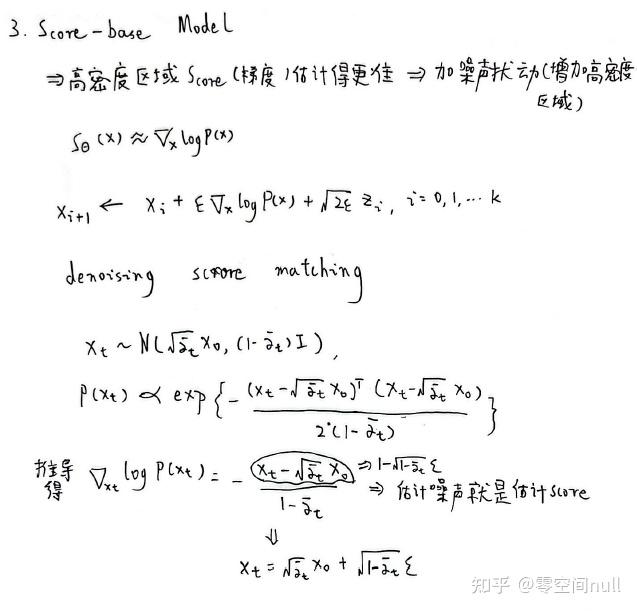 3. Score-base Model
⇒高密度区域 Score(梯度)估计得更佳 ⇒ 加噪声扰动(增加高密度
区域)
S_θ(x) ≈ ∇_x log P(x)
x_{i+1} ← x_i + ε ∇_x log P(x) + √(2ε) z_i, i=0,1,… k
denoising score matching
x_t ~ N(√ᾱ_t x_0, (1-ᾱ_t) I),
P(x_t) ∝ exp{ - (x_t-√ᾱ_t x_0)^T (x_t-√ᾱ_t x_0) / 2·(1-ᾱ_t) }
推导
得 ∇_{x_t} log P(x_t) = - (x_t-√ᾱ_t x_0) / (1-ᾱ_t) ⇒ 1-√(1-ᾱ_t) ε
⇒ 估计噪声就是估计score
⇓
x_t = √ᾱ_t x_0 + √(1-ᾱ_t) ε
知乎 @零空间null